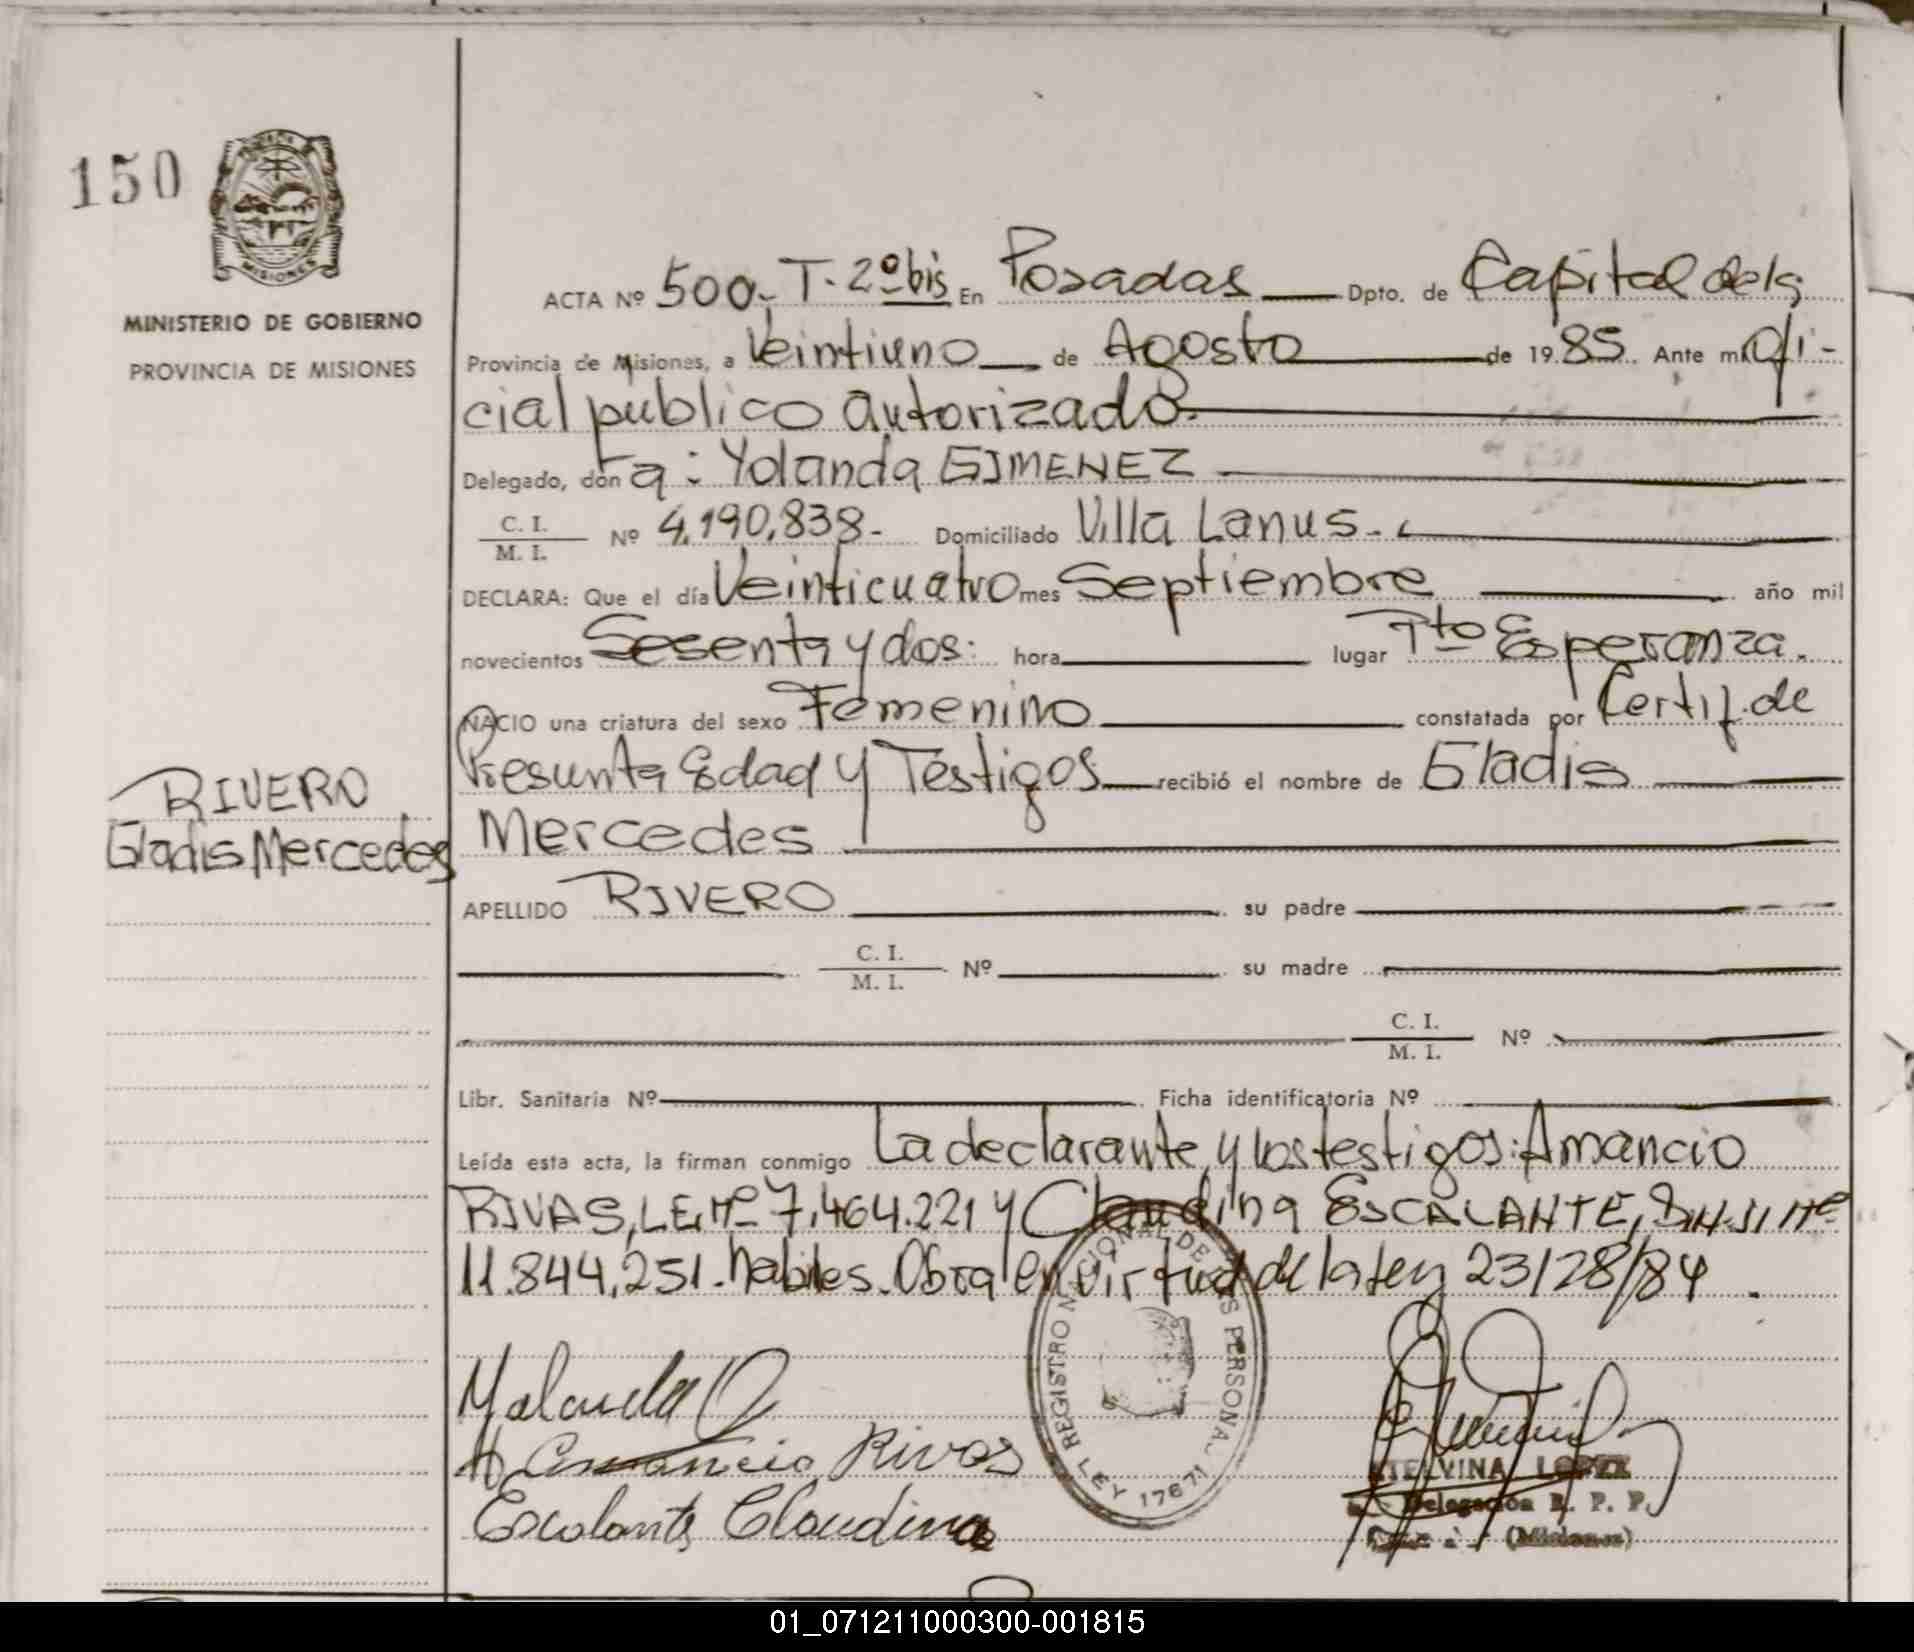 150
MISIONES
MINISTERIO DE GOBIERNO
PROVINCIA DE MISIONES
RIVERO
Gladis Mercedes
ACTA Nº 500.- T. 2º bis En Posadas Dpto. de Capital de la
Provincia de Misiones, a Veintiuno de Agosto de 1985. Ante mi Ofi-
cial publico autorizado.
Delegado, don ra: Yolanda GIMENEZ
C. I.
M. I. Nº 4.190.838.- Domiciliado Villa Lanus.-
DECLARA: Que el día Veinticuatro mes Septiembre año mil
novecientos Sesenta y dos: hora lugar Pto Esperanza.
NACIO una criatura del sexo Femenino constatada por Certif. de
Presunta Edad y Testigos recibió el nombre de Gladis
Mercedes
APELLIDO RIVERO su padre
C. I.
M. I. Nº su madre
C. I.
M. I. Nº
Libr. Sanitaria Nº Ficha identificatoria Nº
Leída esta acta, la firman conmigo La declarante y los testigos: Amancio
RIVAS, L.E. Nº 7.464.221 y Claudina ESCALANTE, D.N.I. Nº
11.844.251. habiles. Obra en virtud de la ley 23128/84.
Yolanda G
Amancio Rivas
Escalante Claudina
REGISTRO NACIONAL DE LAS PERSONAS
LEY 17671
ETELVINA LOPEZ
Delegación R. P. P.
(Misiones)
01_071211000300-001815